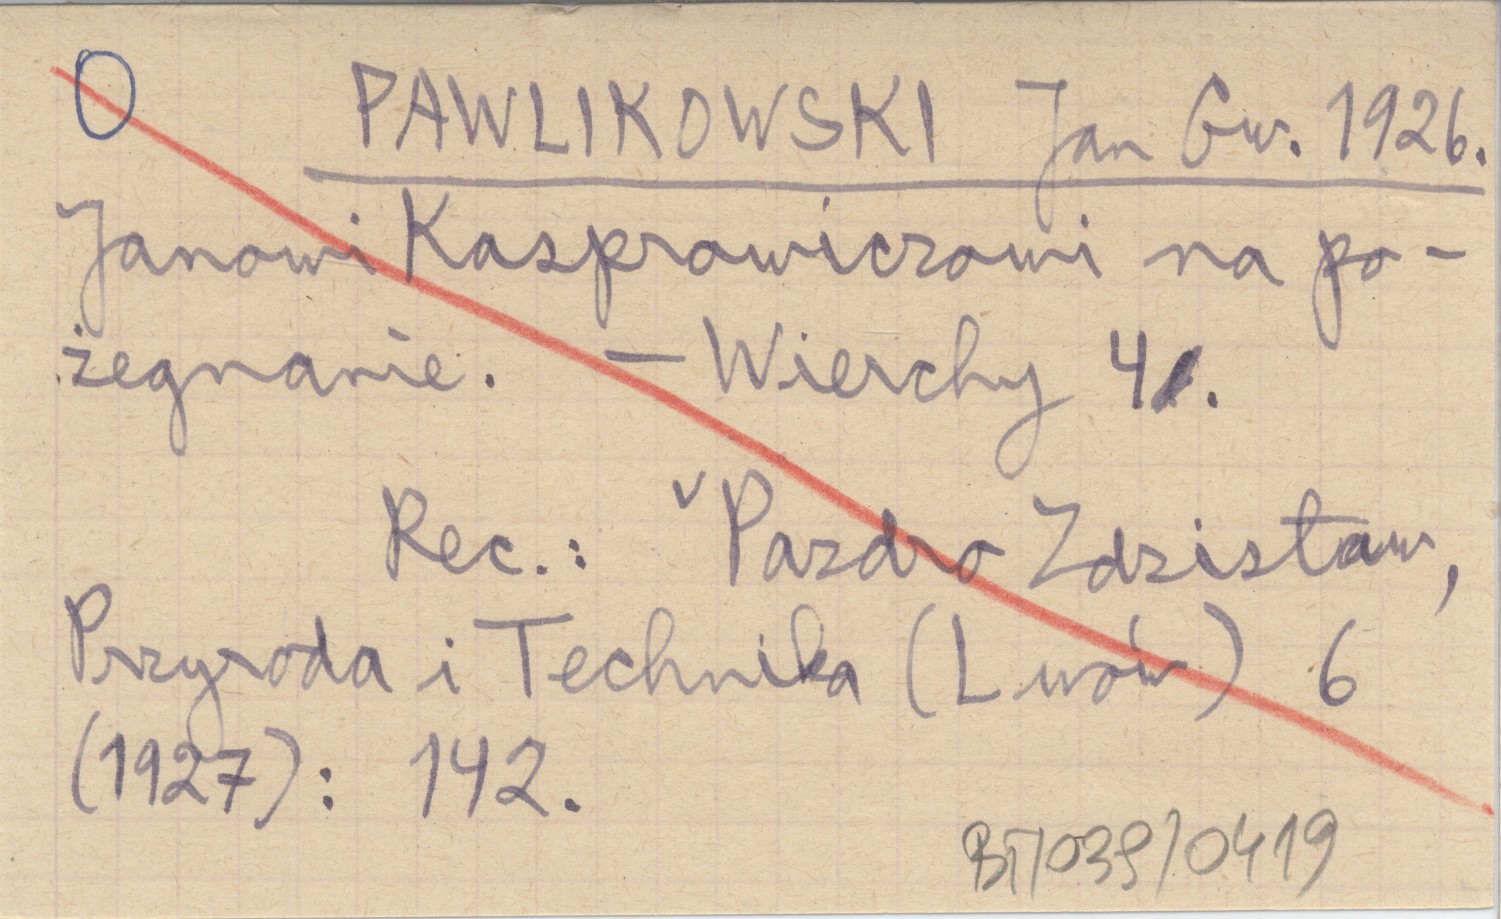 O PAWLIKOWSKI Jan Gw. 1926.
Janowi Kasprowiczowi na po-
żegnanie. — Wierchy 4.
Rec.: v Pazdro Zdzisław,
Przyroda i Technika (Lwów) 6
(1927): 142.
BT/039/0419